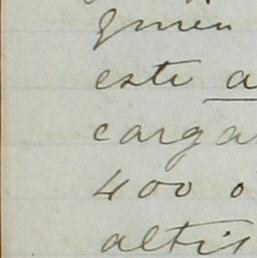 este a
carga
400 o
altis